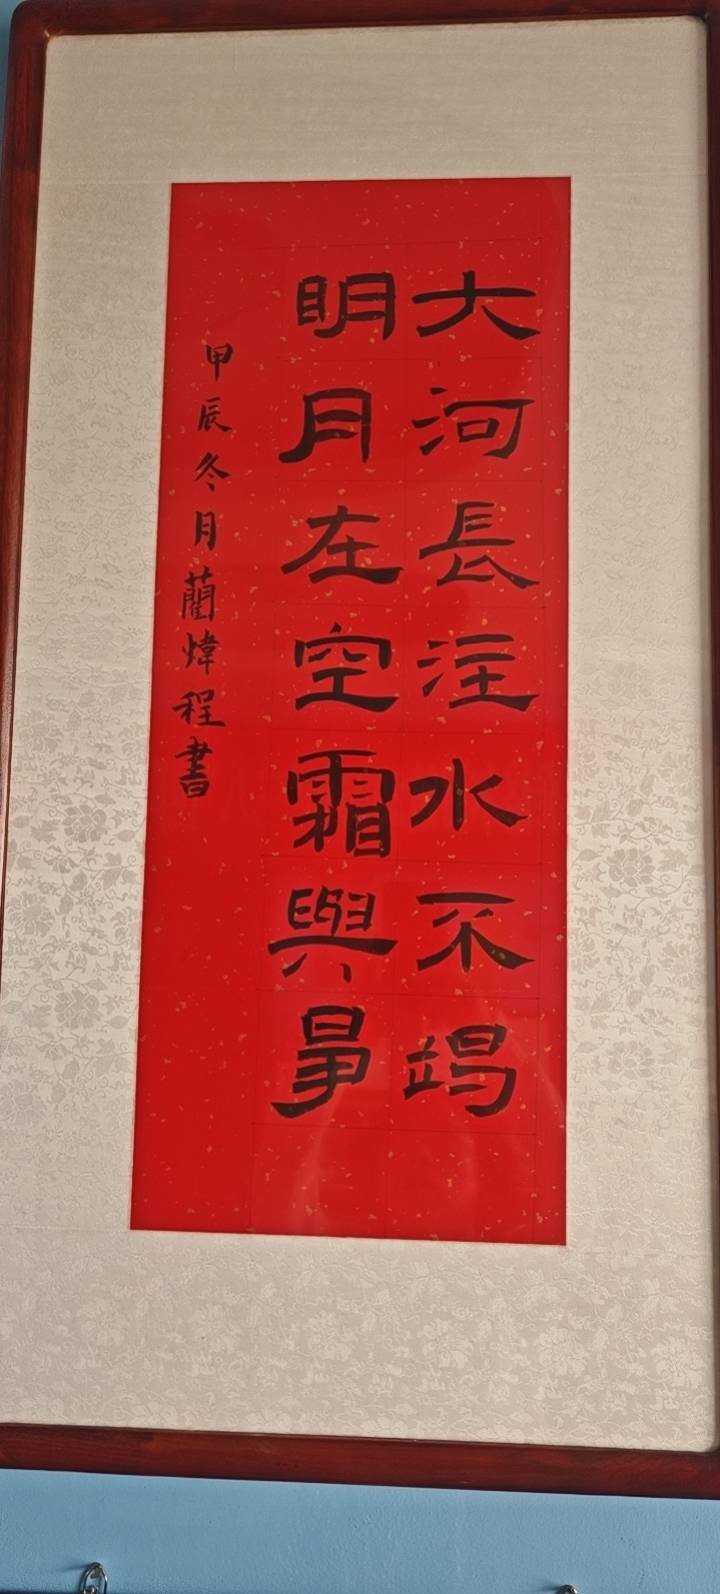 大河長注水不竭
明月在空霜與
甲辰冬月藺煒程書